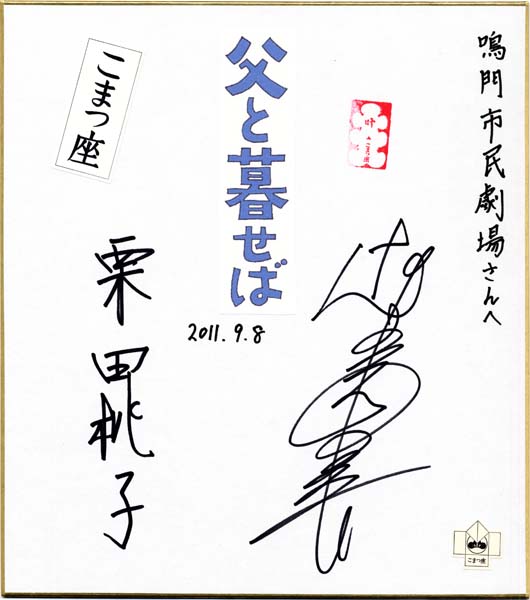 鳴門市民劇場さんへ
父と暮せば
こまつ座
2011.9.8
栗田桃子
こまつ座